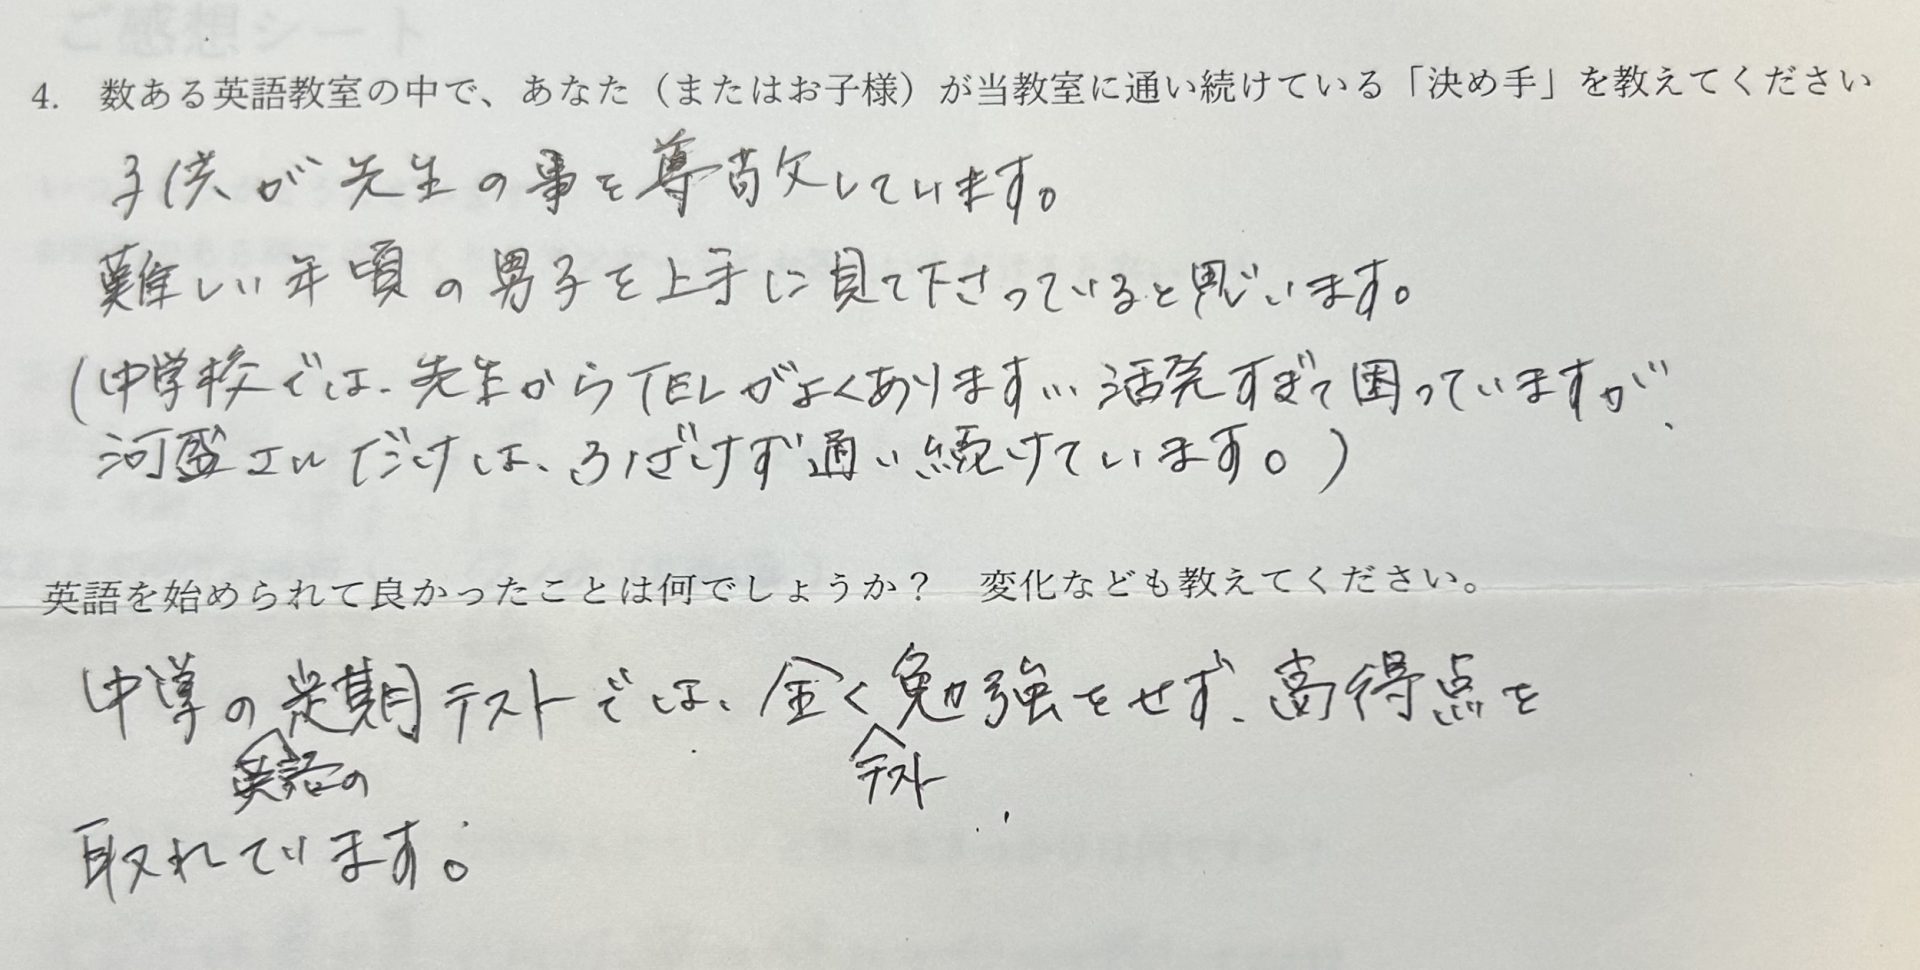 4. 数ある英語教室の中で、あなた（またはお子様）が当教室に通い続けている「決め手」を教えてください
子供が先生の事を尊敬しています。
難しい年頃の男子を上手に見て下さっていると思います。
(中学校では、先生からTELがよくあります… 活発すぎて困っていますが、
河盛エルだけは、ふざけず通い続けています。)
英語を始められて良かったことは何でしょうか？　変化なども教えてください。
中学の定期テストでは、全く勉強をせず、高得点を
英語の テスト
取れています。